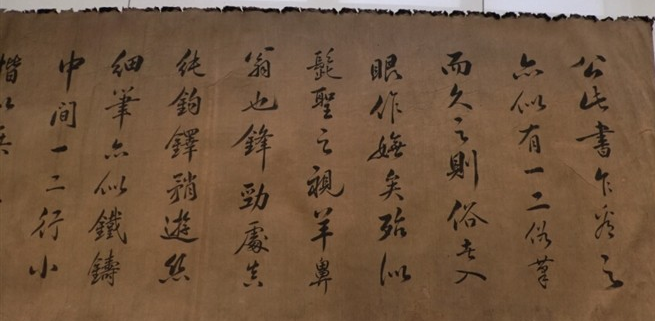 公此書乍看之
亦似有一二俗筆
而久之則俗者入
眼作嫵矣殆似
髭聖之視羊鼻
翁也鋒勁處真
純鉤鐸鞘遊絲
細筆亦似鐵鑄
中間一二行小
楷以